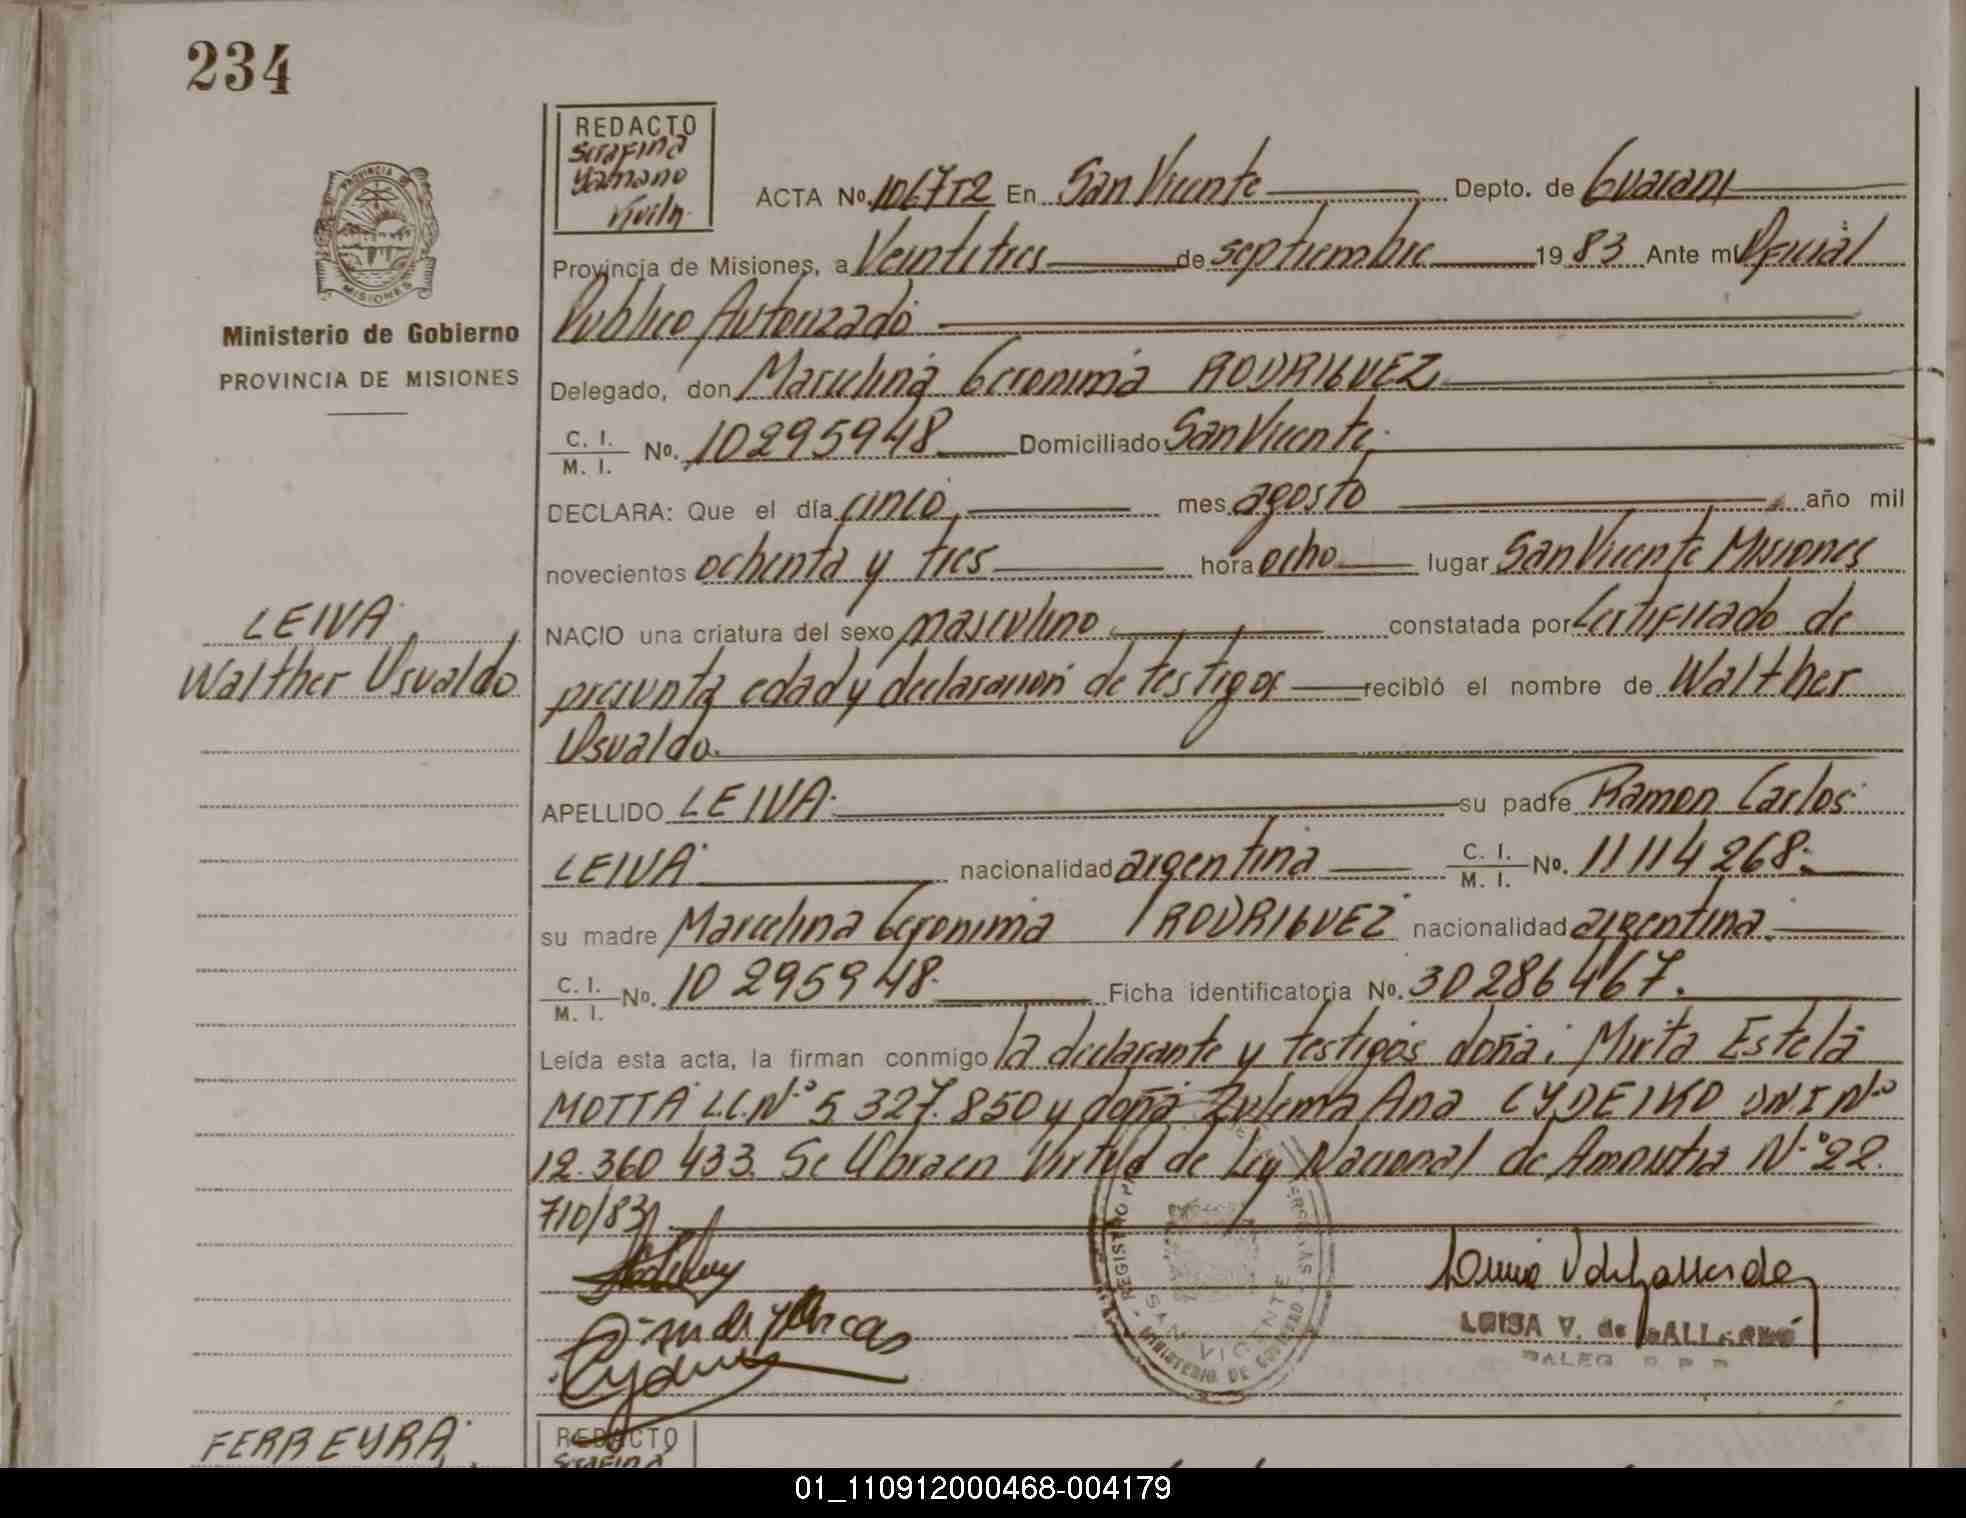 234
REDACTO
Serafina
Yamano
ACTA No. 1067T2 En San Vicente Depto. de Guarani
Provincia de Misiones, a Veintitres de septiembre 1983 Ante mí Oficial
Publico Autorizado
PROVINCIA DE
MISIONES
Ministerio de Gobierno
PROVINCIA DE MISIONES
Delegado, don Marcelina Geronima RODRIGUEZ
C. I. / M. I. No. 10295948 Domiciliado San Vicente.
DECLARA: Que el día cinco mes agosto año mil
novecientos ochenta y tres hora ocho lugar San Vicente Misiones
LEIVA
Walther Osvaldo
NACIO una criatura del sexo masculino constatada por Certificado de
presunta edad y declaracion de testigos recibió el nombre de Walther
Osvaldo.
APELLIDO LEIVA su padre Ramon Carlos
LEIVA nacionalidad argentina C. I. / M. I. No. 11114268
su madre Marcelina Geronima RODRIGUEZ nacionalidad argentina.
C. I. / M. I. No. 10 295948. Ficha identificatoria No. 30286467.
Leída esta acta, la firman conmigo la declarante y testigos doña: Mirta Estela
MOTTA L.C.Nº 5 327.850 y doña Zulema Ana CYDEIKO DNI Nº
12.360 433. Se labra en Virtud de Ley Nacional de Amnistia Nº 22.
710/83
REGISTRO
SAN VICENTE
MINISTERIO DE GOBIERNO
LUISA V. de GALLARDO
FERREYRA
REDACTO
Serafina
01_110912000468-004179